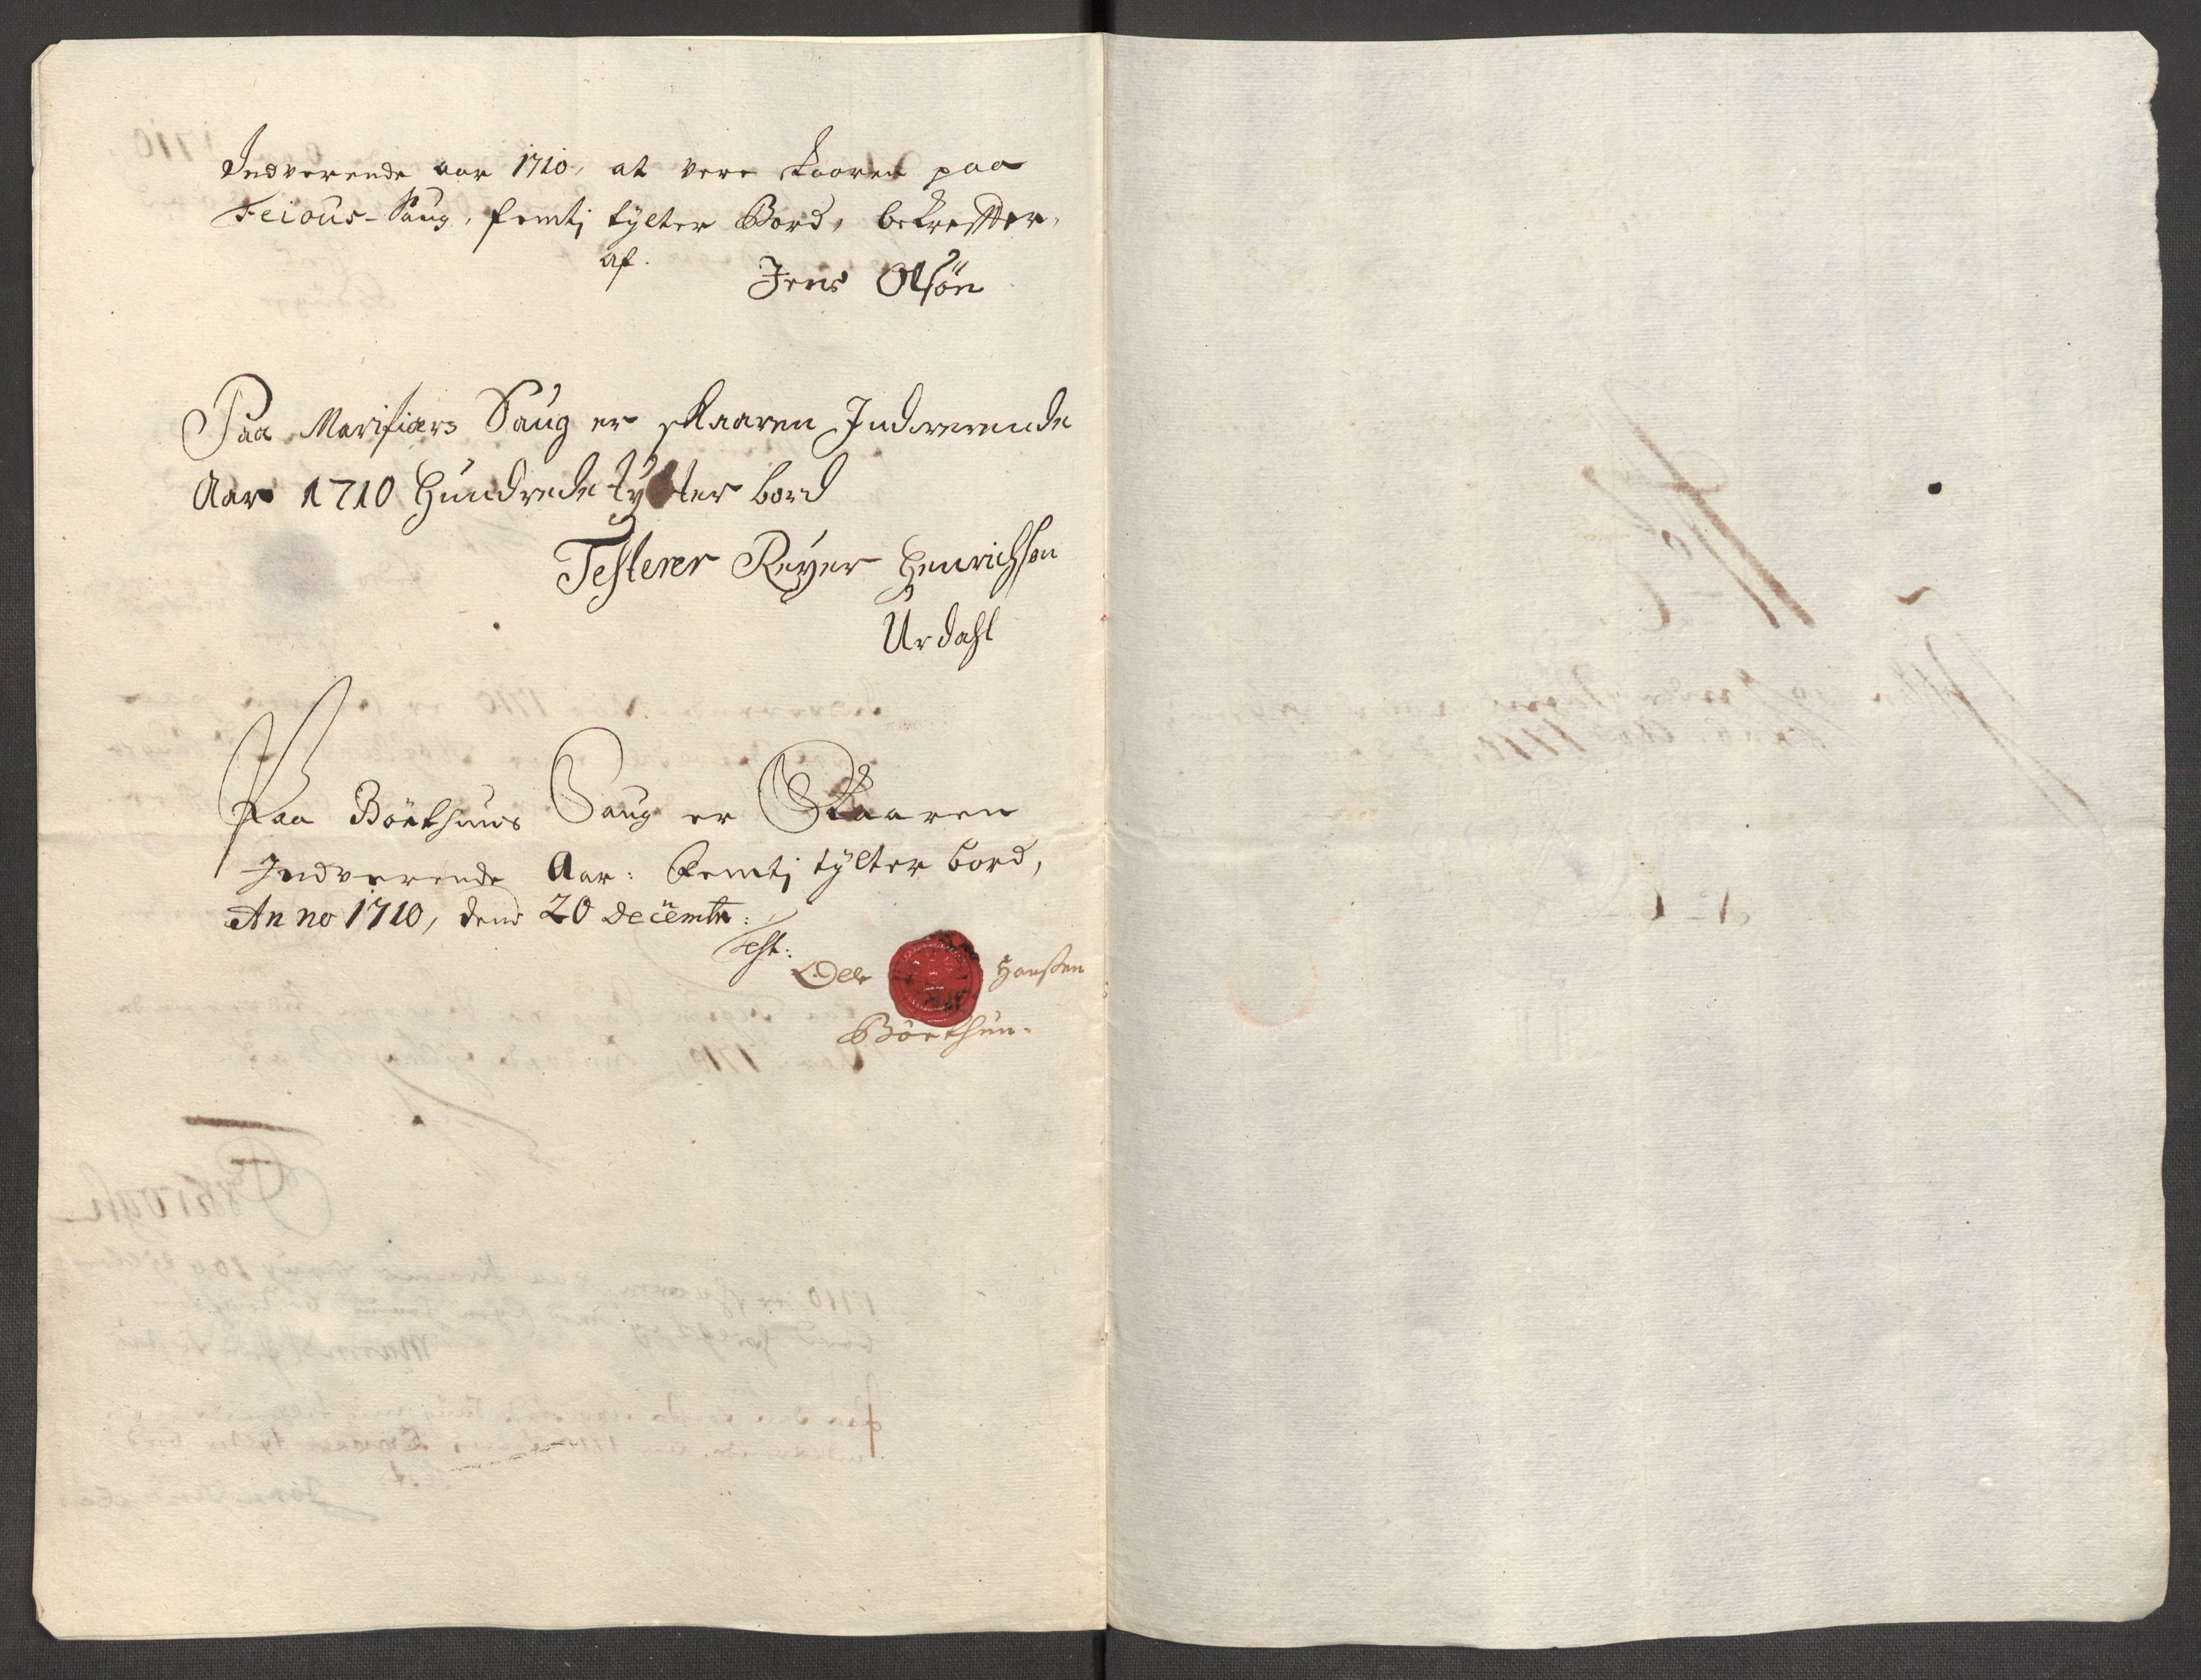 Indverende aar 1710, at vere skaaren paa
Feious-Saug, femtj tylter Bord, bekreffter,
af.
Jens Olsön
Paa Marifiærs Saug er skaaren Indverende
Aar 1710 Hundrede tylter bord
Testerer Reyer Henrichsön
Urdahl
Paa Böethuus Saug er Skaaren
Indverende Aar: Femtj tylter bord,
Anno 1710, dend 20 Decembr:
Test:
Oele Hanssen
Böethun.